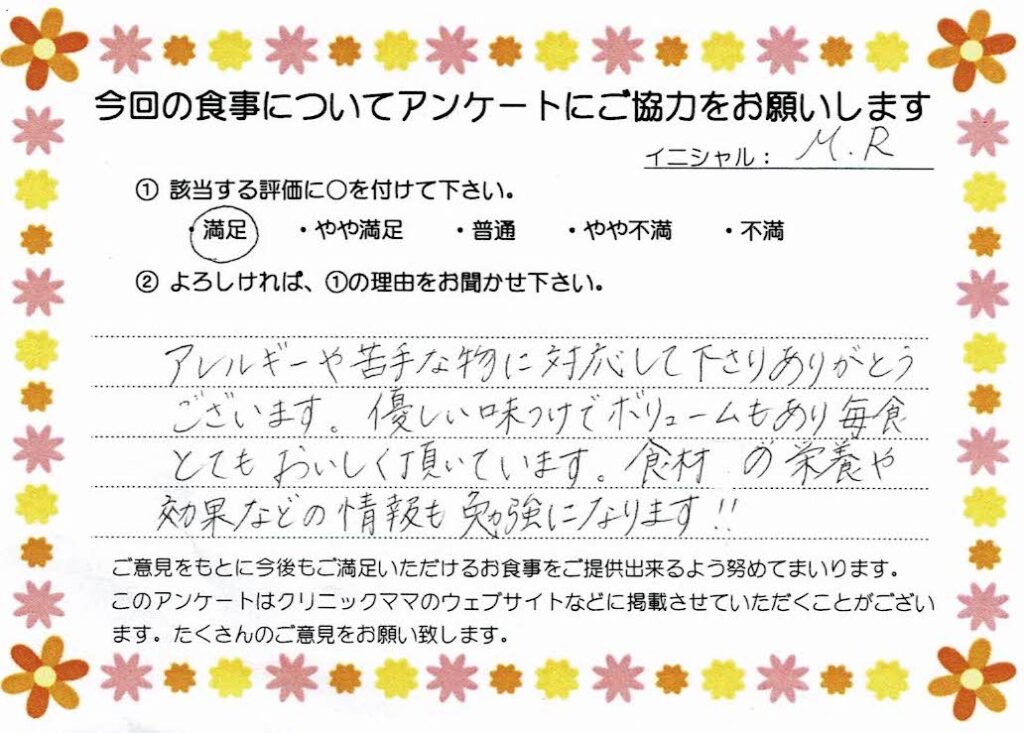 今回の食事についてアンケートにご協力をお願いします
イニシャル： M.R
① 該当する評価に○を付けて下さい。
・満足 ・やや満足 ・普通 ・やや不満 ・不満
② よろしければ、①の理由をお聞かせ下さい。
アレルギーや苦手な物に対応して下さりありがとう
ございます。優しい味つけでボリュームもあり毎食
とてもおいしく頂いています。食材の栄養や
効果などの情報も勉強になります!!
ご意見をもとに今後もご満足いただけるお食事をご提供出来るよう努めてまいります。
このアンケートはクリニックママのウェブサイトなどに掲載させていただくことがござい
ます。たくさんのご意見をお願い致します。